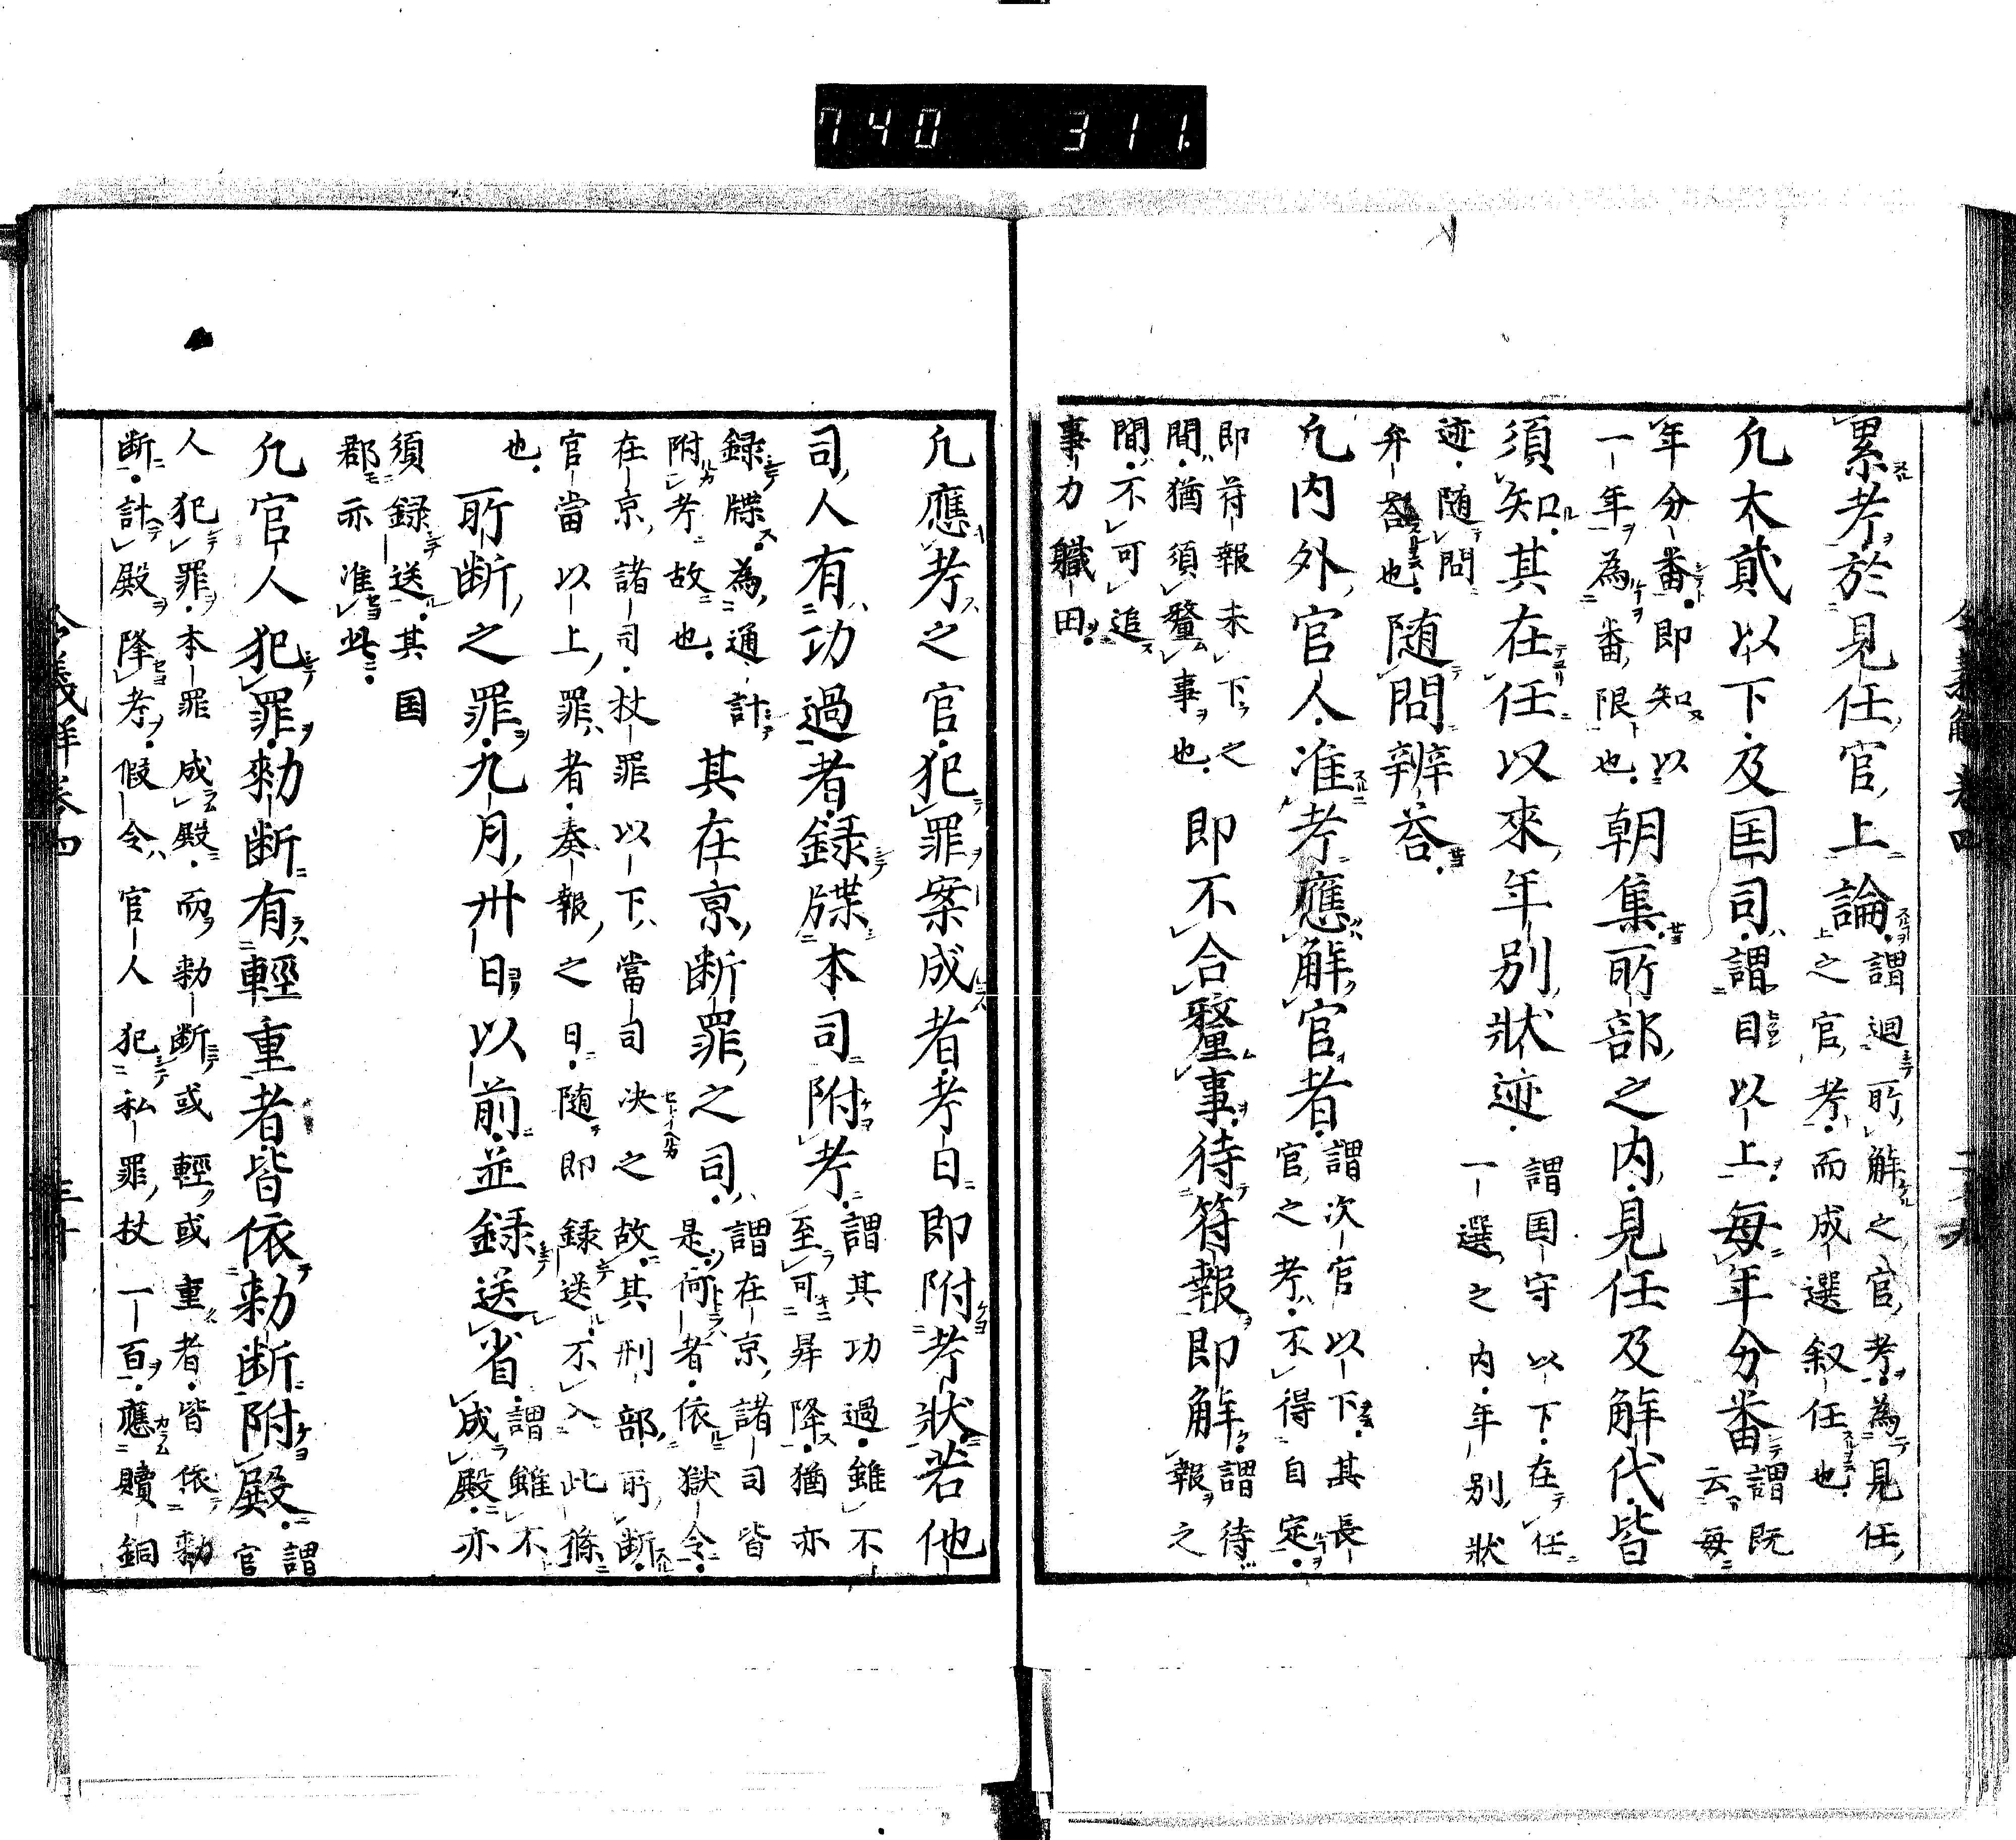 740 311
累考於見任官上論謂迴所解之官考為見任
上之官考而成選叙任也
凡太貳以下及国司謂目以上毎年分番謂既
云毎
年分番即知以
一年為番限也朝集所部之内見任及解代皆
須知其在任以來年別狀迹謂国守以下在任
一選之内年別狀
迹随問
弁荅也随問辨荅
凡内外官人准考應解官者謂次官以下其長
官之考不得自定
即符報未下之
間猶須釐事也即不合釐事待符報即解謂待
報之
間不可追
事力職田
凡應考之官犯罪案成者考日即附考狀若他
司人有功過者録牒本司附考謂其功過雖不
至可昇降猶亦
録牒為通計
附考故也其在京断罪之司謂在京諸司皆
是何者依獄令
在京諸司杖罪以下當司决之故其刑部所断
官當以上罪者奏報之日随即録送不入此條
也
所断之罪九月卅日以前並録送省謂雖不
成殿亦
須録送其国
郡亦准此
凡官人犯罪勅断有輕重者皆依勅断附殿謂
官
人犯罪本罪成殿而勅断或輕或重者皆依勅
断計殿降考假令官人犯私罪杖一百應贖銅
令義解卷四